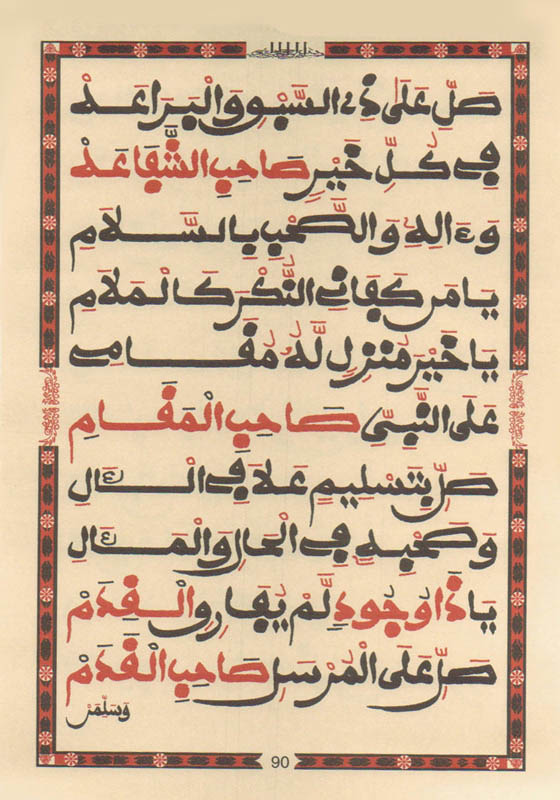 صَلِّ عَلَى ذِي السَّبْقِ وَالْبَرَاعَهْ
فِي كُلِّ خَيْرٍ صَاحِبِ الشَّفَاعَهْ
وَءَالِهِ وَالصَّحْبِ بِالسَّلَامِ
يَا مَن كَفَانِي النُّكْرَ كَالْمَلَامِ
يَا خَيْرَ مُنزِلٍ لَّهُ مَقَامِي
عَلَى النَّبِيِّ صَاحِبِ الْمَقَامِ
صَلِّ بِتَسْلِيمٍ عَلَا فِي الْـَٔالِ
وَصَحْبِهِ فِي الْحَالِ وَالْمَـَٔالِ
يَا ذَا وُجُودٍ لَّمْ يُفَارِقِ الْقِدَمْ
صَلِّ عَلَى الْمُرْسَلِ صَاحِبِ الْقَدَمْ
وَسَلِّمَنْ
90